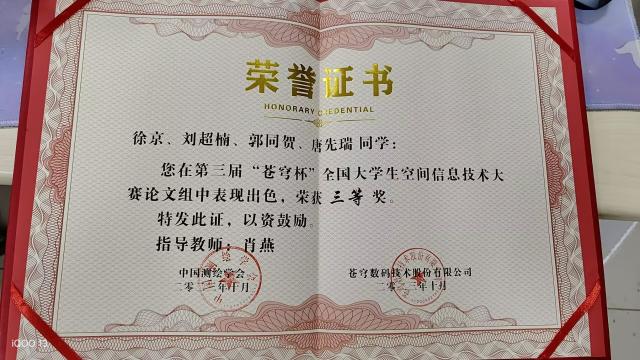 荣誉证书
HONORARY CREDENTIAL
徐京、刘超楠、郭同贺、唐先瑞同学：
您在第三届“苍穹杯”全国大学生空间信息技术大
赛论文组中表现出色，荣获三等奖。
特发此证，以资鼓励。
指导教师：肖燕
中国测绘学会
二〇二三年十月
苍穹数码技术股份有限公司
二〇二三年十月
iQOO